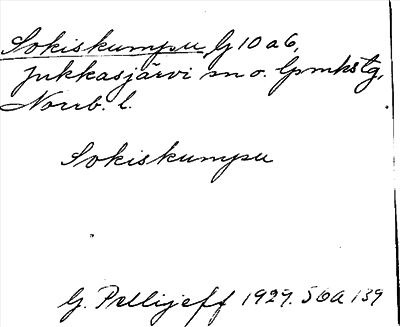 Sokiskumpu, G 10 a 6,
Jukkasjärvi sn o. lpmkstg,
Norrb. l.
Sokiskumpu
G. Pellijeff 1929. 56A 139